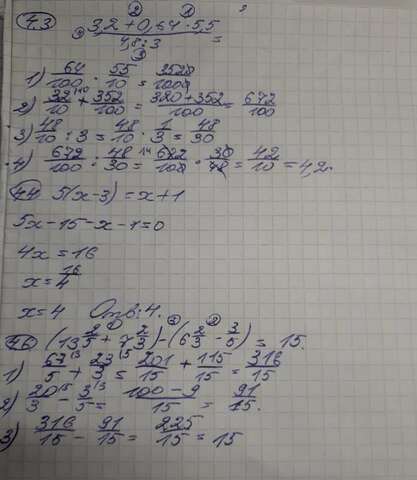 4.3 (3,2 + 0,64 · 5,5) / (4,8 : 3) =
1) 64/100 · 55/10 = 3520/1000
2) 32/10 + 352/100 = (320+352)/100 = 672/100
3) 48/10 : 3 = 48/10 · 1/3 = 48/30
4) 672/100 : 48/30 = 672/100 · 30/48 = 42/10 = 4,2
4.4 5(x-3) = x+1
5x-15-x-1=0
4x=16
x=16/4
x=4 Ответ: 4.
4.6 (13 2/5 + 7 2/3) - (6 2/3 - 3/5) = 15.
1) 67/5 + 23/3 = 201/15 + 115/15 = 316/15
2) 20/3 - 3/5 = (100-9)/15 = 91/15.
3) 316/15 - 91/15 = 225/15 = 15